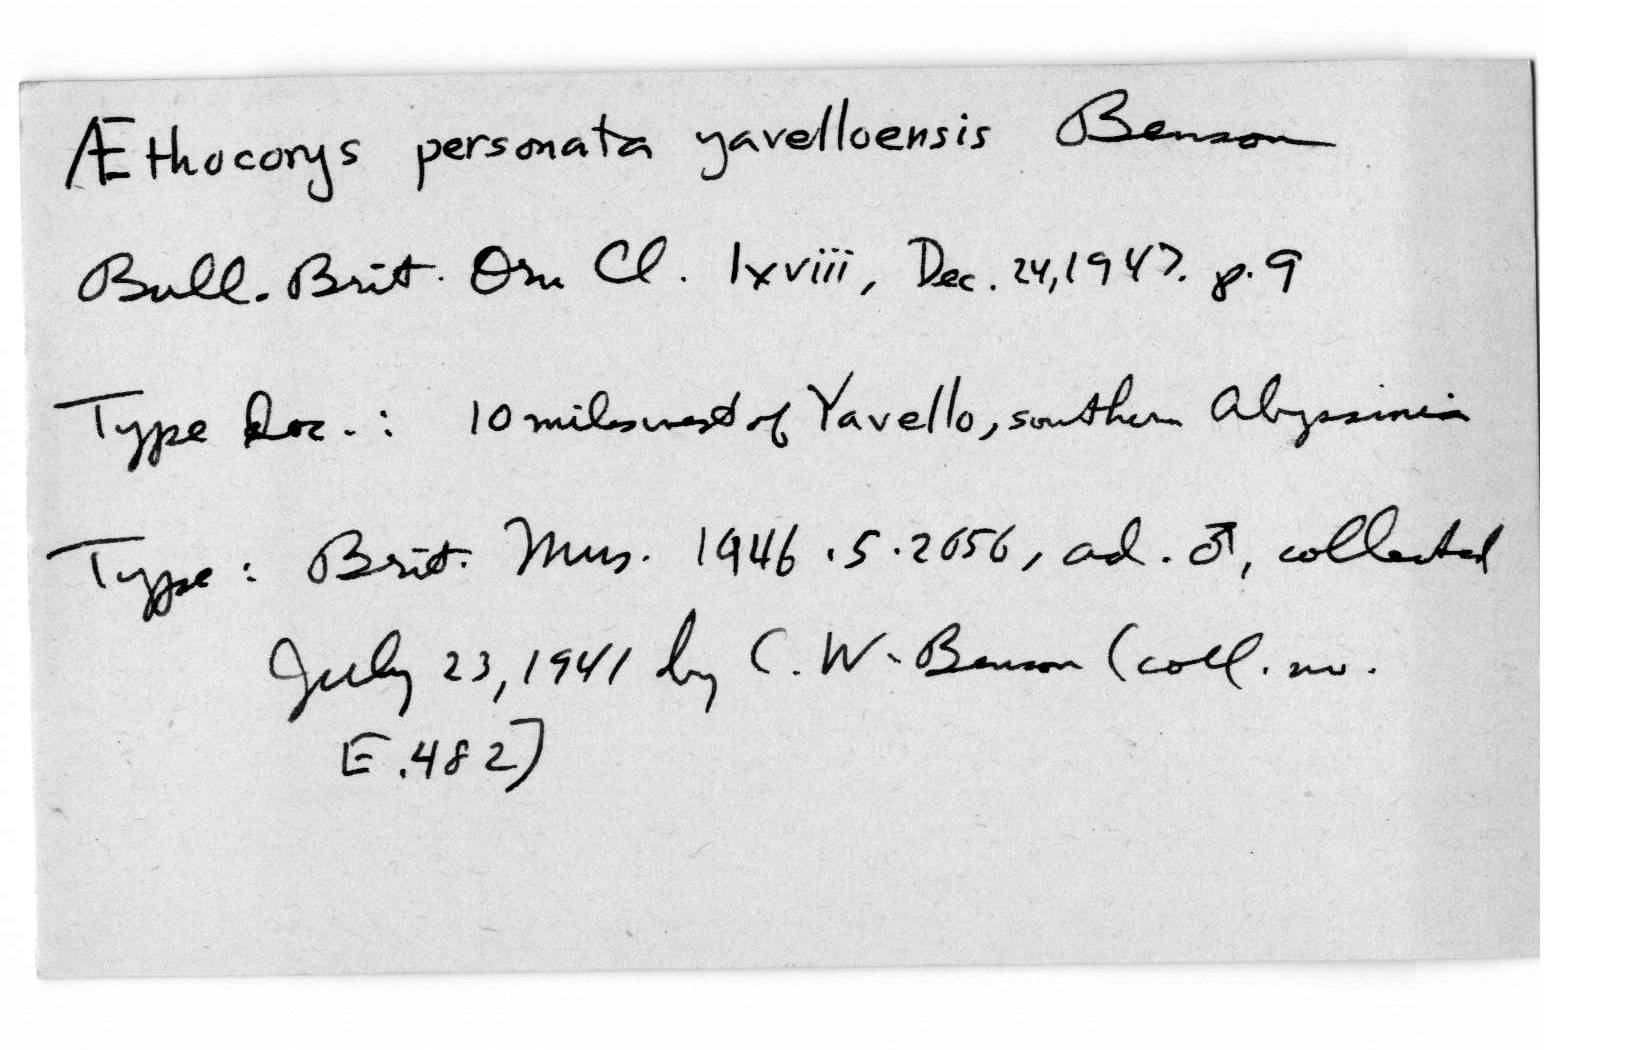 Æthocorys personata yavelloensis Benson
Bull. Brit. Orn Cl. lxviii, Dec. 24, 1947. p. 9
Type loc. : 10 miles west of Yavello, southern Abyssinia
Type : Brit. Mus. 1946 . 5 . 2656, ad. ♂, collected
July 23, 1941 by C. W. Benson (coll. no.
E. 482)